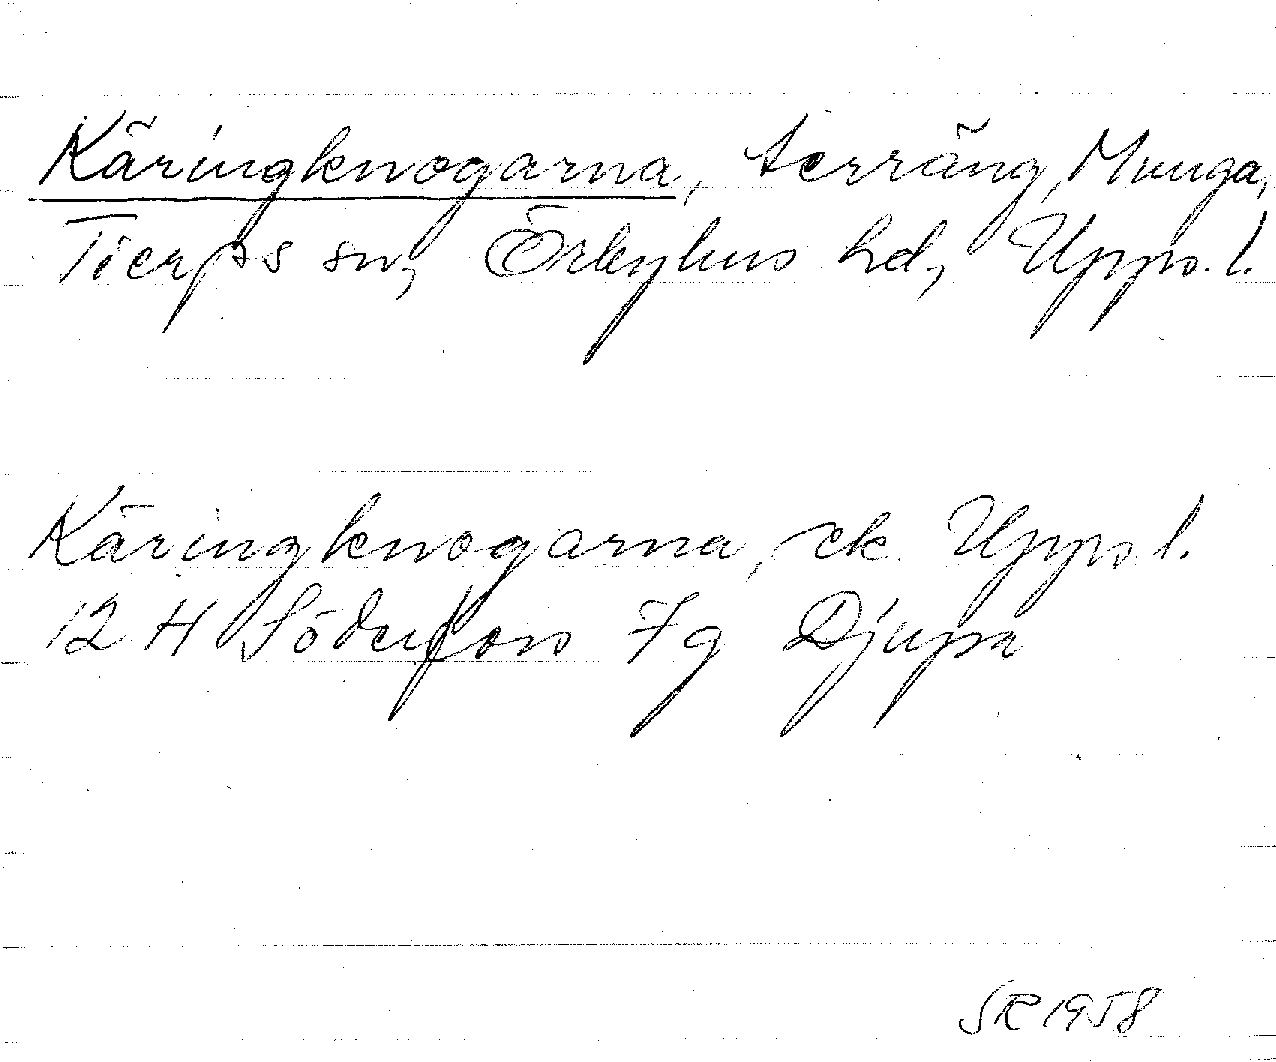 Käringknogarna, terräng, Munga,
Tierps sn, Örbyhus hd, Uppl.
Käringknogarna, ek. Uppl.
12 H Söderfors 7g Djupa
SR 1958